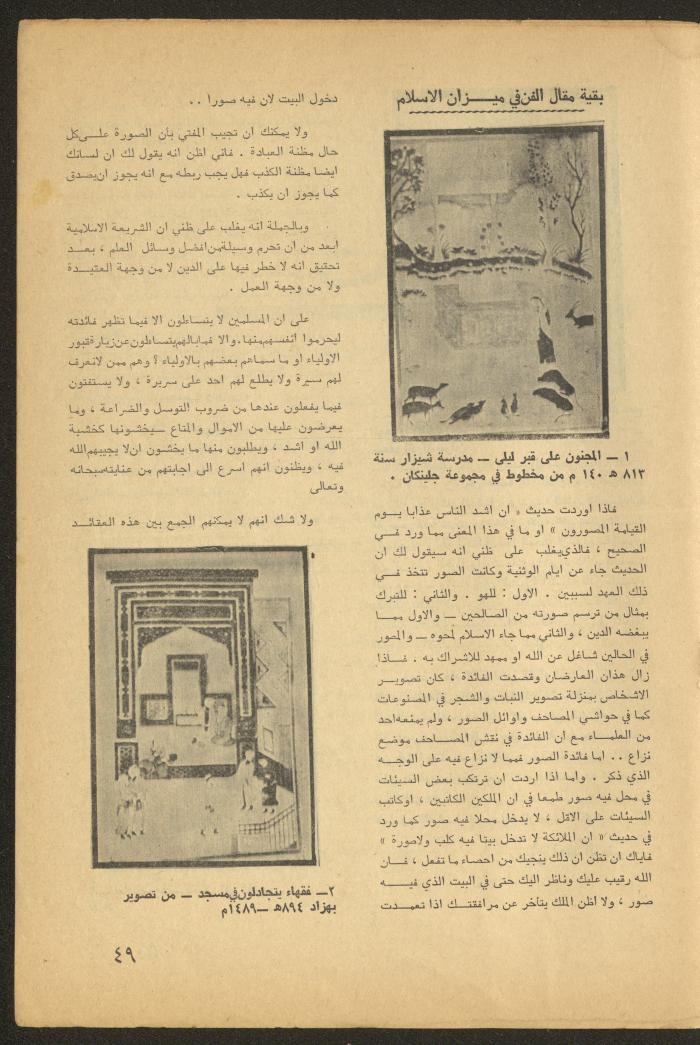 بقية مقال الفن في ميـــــزان الاسلام
١ — المجنون على قبر ليلى — مدرسة شيزار سنة
٨١٣ هـ ١٤٠ م من مخطوط في مجموعة جلبنكان .
فاذا اوردت حديث « ان اشد الناس عذابا يــوم
القيامة المصورون » او ما في هذا المعنى مما ورد فــي
الصحيح ، فالذي يغلب على ظني انه سيقول لك ان
الحديث جاء عن ايام الوثنية وكانت الصور تتخذ فــي
ذلك العهد لسببين . الاول : للهو . والثاني : للتبرك
بمثال من ترسم صورته من الصالحين — والاول ممــا
يبغضه الدين ، والثاني مما جاء الاسلام لمحوه — والمصور
في الحالين شاغل عن الله او ممهد للاشراك به . فــاذا
زال هذان العارضان وقصدت الفائدة ، كان تصويــر
الاشخاص بمنزلة تصوير النبات والشجر في المصنوعات
كما في حواشي المصاحف واوائل الصور ، ولم يمنعه احد
من العلمــاء مع ان الفائدة في نقش المصــاحف موضع
نزاع .. اما فائدة الصور فمما لا نزاع فيه على الوجــه
الذي ذكر . واما اذا اردت ان ترتكب بعض السيئات
في محل فيه صور طمعا في ان الملكين الكاتبين ، او كاتب
السيئات على الاقل ، لا يدخل محلا فيه صور كما ورد
في حديث « ان الملائكة لا تدخل بيتا فيه كلب ولاصورة »
فاياك ان تظن ان ذلك ينجيك من احصاء ما تفعل ، فــان
الله رقيب عليك وناظر اليك حتى في البيت الذي فيــه
صور ، ولا اظن الملك يتأخر عن مرافقتــك اذا تعمــدت
دخول البيت لان فيه صورا . .
ولا يمكنك ان تجيب المفتي بأن الصورة علــى كل
حال مظنة العبادة . فاني اظن انه يقول لك ان لسانك
ايضا مظنة الكذب فهل يجب ربطه مع انه يجوز ان يصدق
كما يجوز ان يكذب .
وبالجملة انه يغلب على ظني ان الشريعة الاسلامية
ابعد من ان تحرم وسيلة من افضل وسائل العلم ، بعــد
تحقيق انه لا خطر فيها على الدين لا من وجهة العقيــدة
ولا من وجهة العمل .
على ان المسلمين لا يتساءلون الا فيما تظهر فائدته
ليحرموا انفسهم منها . والا فما بالهم يتساءلون عن زيارة قبور
الاولياء او ما سماهم بعضهم بالاولياء ؟ وهم ممن لا تعرف
لهم سيرة ولا يطلع لهم احد على سريرة ، ولا يستفتون
فيما يفعلون عندها من ضروب التوسل والضراعة ، وما
يعرضون عليها من الاموال والمتاع — يخشونها كخشية
الله او اشد ، ويطلبون منها ما يخشون ان لا يجيبهم الله
فيه ، ويظنون انهم اسرع الى اجابتهم من عنايته سبحانه
وتعالى
ولا شك انهم لا يمكنهم الجمع بين هذه العقائــد
٢— فقهاء يتجادلون في مسجد — من تصوير
بهزاد ٨٩٤هـ —١٤٨٩م
٤٩